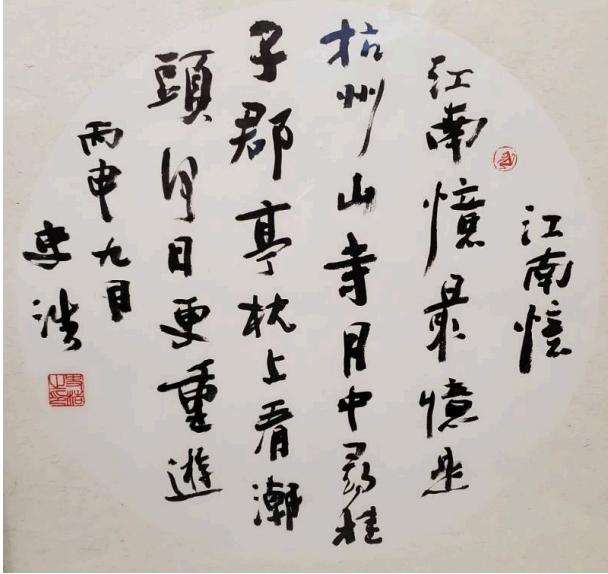 江南憶
江南憶最憶是
杭州山寺月中尋桂
子郡亭枕上看潮
頭何日更重遊
丙申九月
史浩